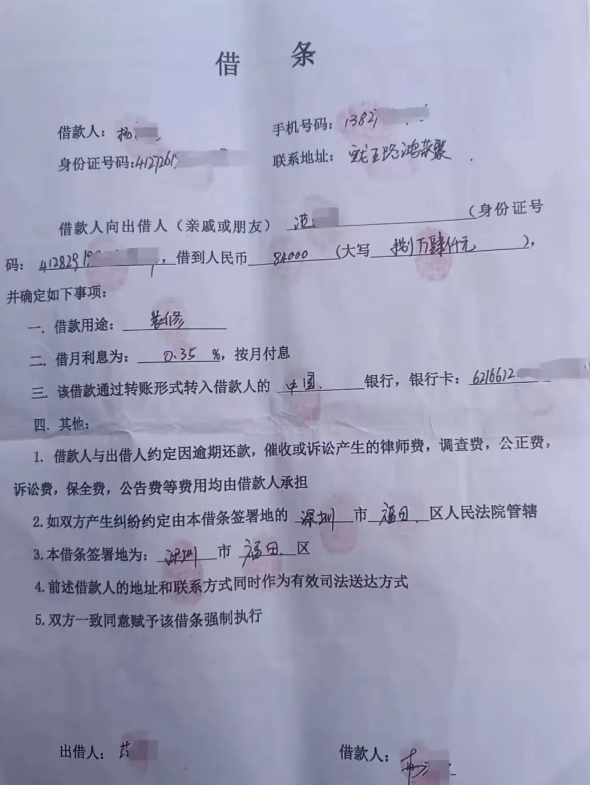 借 条
借款人：杨
手机号码：1382
身份证号码：4127261
联系地址：龙王路鸿荣聚
借款人向出借人（亲戚或朋友） 范 （身份证号
码：41282919 ，借到人民币 84000 （大写 捌万肆仟元 ），
并确定如下事项：
一．借款用途： 装修
二．借月利息为： 0.35 %，按月付息
三．该借款通过转账形式转入借款人的 中国 银行，银行卡：6216612
四．其他：
1. 借款人与出借人约定因逾期还款，催收或诉讼产生的律师费，调查费，公正费，
诉讼费，保全费，公告费等费用均由借款人承担
2.如双方产生纠纷约定由本借条签署地的 深圳 市 福田 区人民法院管辖
3.本借条签署地为： 深圳 市 福田 区
4.前述借款人的地址和联系方式同时作为有效司法送达方式
5.双方一致同意赋予该借条强制执行
出借人：
借款人：